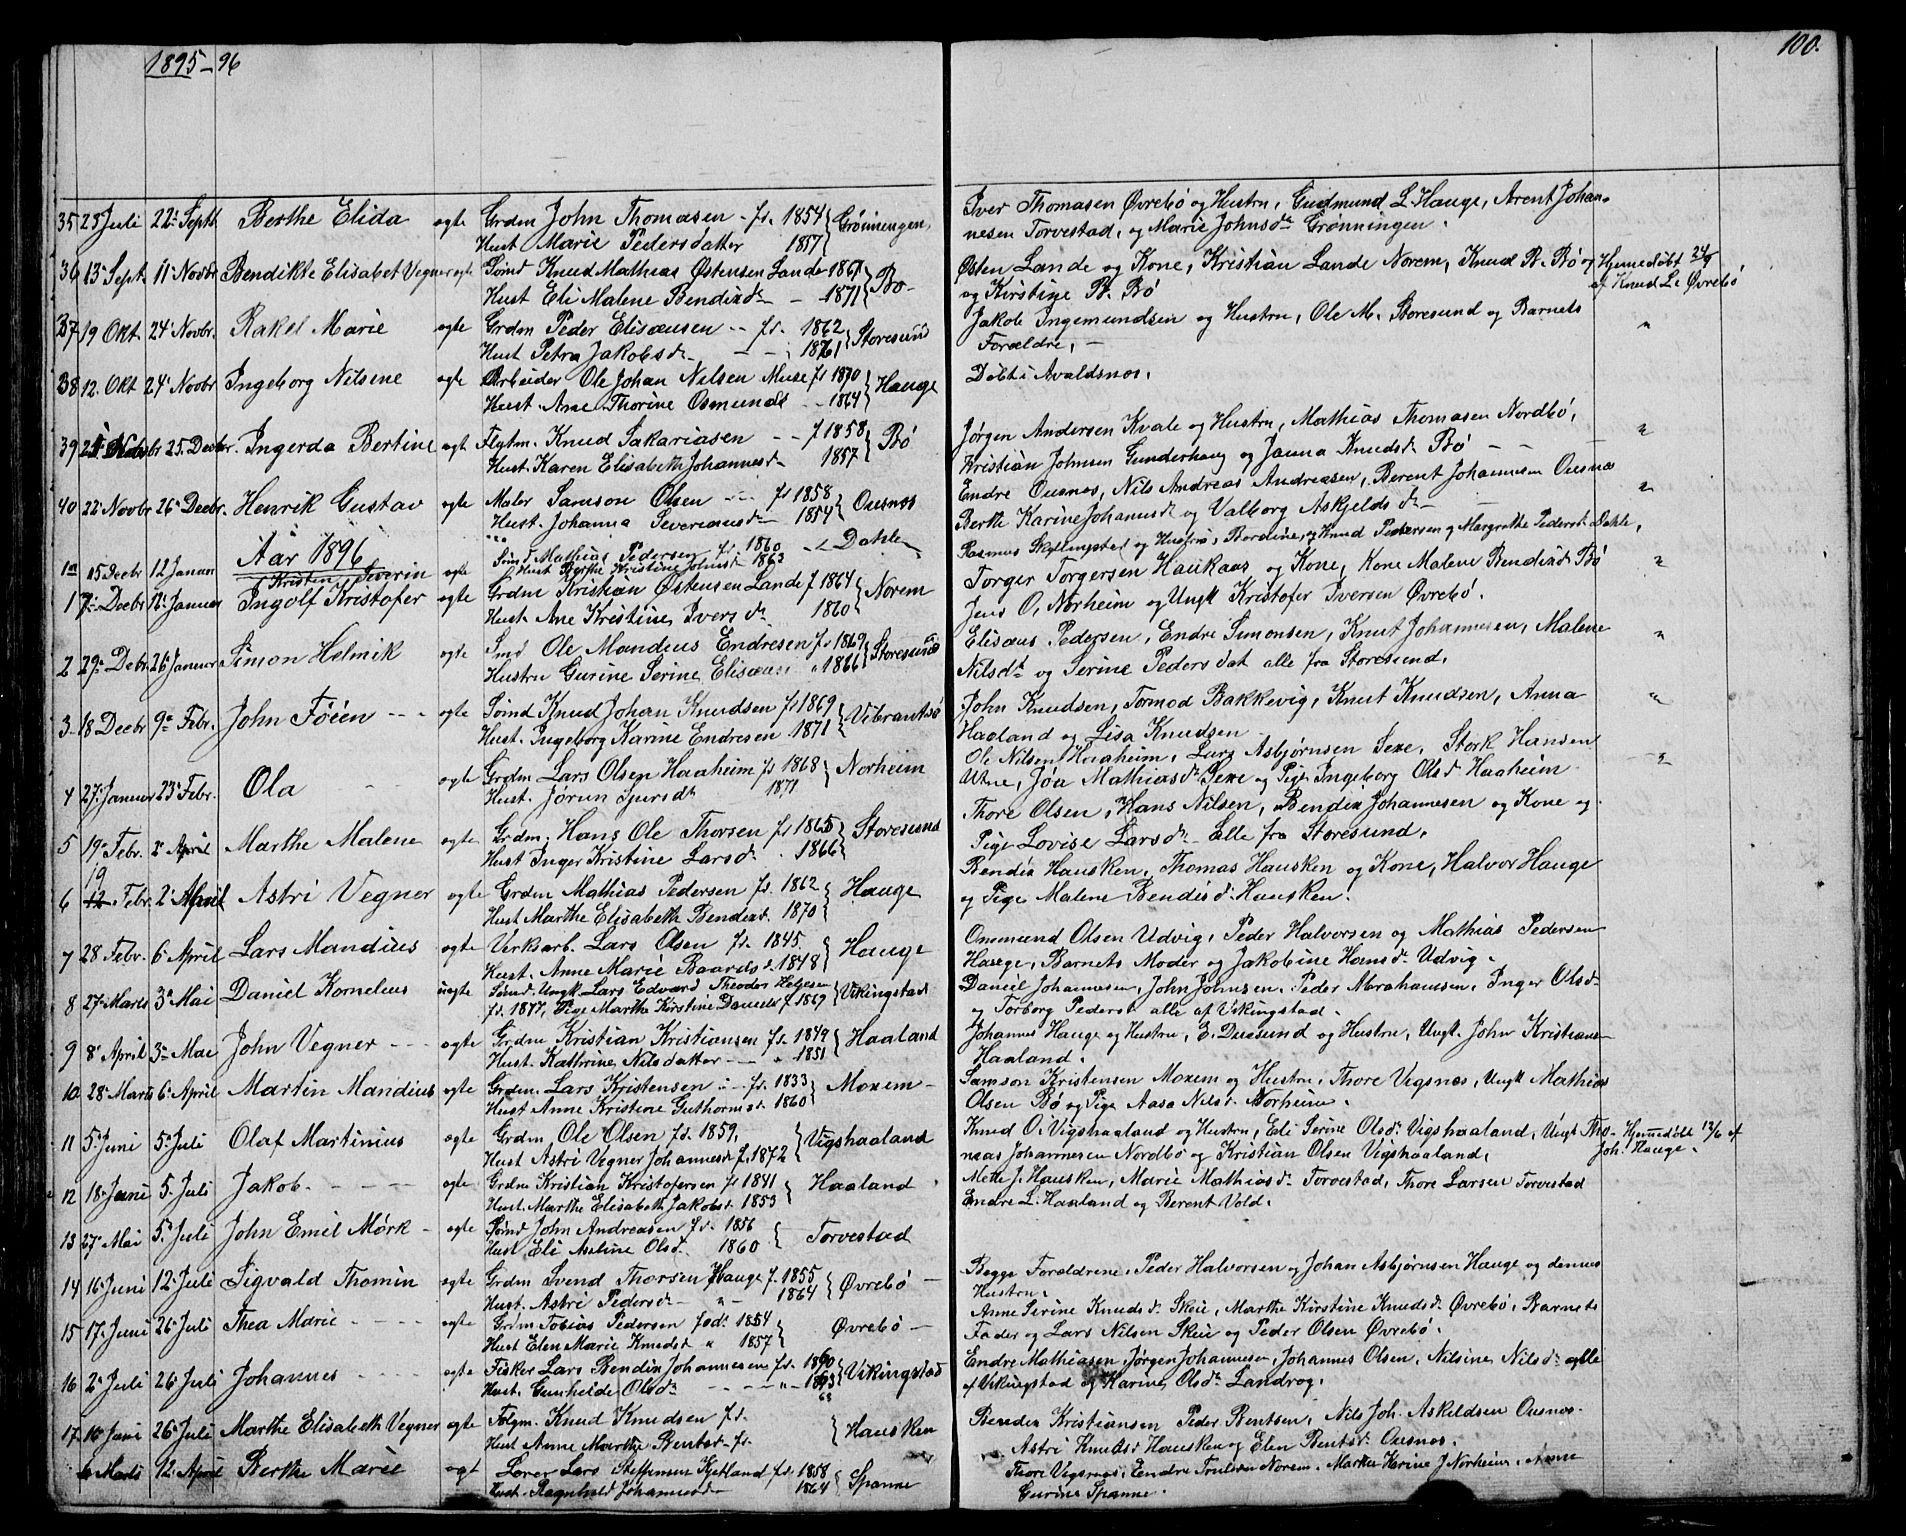 1895-96
100.
35 23 Juli 22 Septb. Berthe Elida ægte Grdm John Thomasen - fd. 1854 Grönningen
Hust Marie Pedersdatter 1857
Iver Thomasen Øvrebö og Hustru, Gudmund L. Hauge, Arent Johan-
nesen Torvestad, og Marie Johnsdr Grönningen.
36 13 Sept. 11 Novbr Bendikte Elisabet Vegner ægte Sömd Knud Mathias Östensen Lande 1867 Bö
Hust Eli Malene Bendixdr - 1871
Østen Lande og Kone, Kristian Lande Norem, Knud B. Bö
og Kirstine B. Bö
Hjemedöbt 24/9
af Knud L. Øvrebö
37 19 Okt 24 Novbr. Rakel Marie ægte Grdm Peder Elisæusen - fd. 1862 Storesund
Hust Petra Jakobsdr - - 1861
Jakob Ingemundsen og Hustru, Ole M. Storesund og Barnets
Forældre, - "
38 12. Okt 24 Novbr Ingeborg Nilsine ægte Arbeider Ole Johan Nilsen Muse fd 1870 Hauge
Hust. Ane Thorine Osmundsd - 1864
Döbt i Avaldsnes.
39 25. Decbr. Ingerda Bertine ægt Flytm. Knud Sakariasen - - f 1858 Bö
Hust. Karen Elisabeth Johannesdr 1857
Jörgen Andersen Kvale og Hustru, Mathias Thomasen Nordbö,
Kristian Johnsen Gunderhaug og Janna Knudsdr Bö - - "
40 22 Novbr 26 Decbr. Henrik Gustav ægte Maler Samson Olsen - fd 1858 Ousnes
Hust. Johanna Severinsdr - 1854
Endre Ousnes, Nils Andreas Andreasen, Berent Johannesen Ousnes
Berthe Karine Johannesdr og Valborg Askjeldsdr - "
Aar 1896
1a 15 Decbr 12 Januar Kristen Severin ægte Sömd Mathias Pedersen fd. 1860 Dahle
Hust Berthe Kristine Johnsd 1863
Rasmus Skjellingstad og Hustru, Knud Pedersen og Margrethe Pedersdr Dahle,
1 7 Decbr 12 Januar Ingolf Kristofer ægte Grdm Kristian Östensen Lande f 1864 Norem
Hust. Ane Kristine Iversdr 1860
Torger Torgersen Haukaas og Kone, Kone Malene Bendixdr Bö "
Jens O. Norheim og Ungk Kristofer Iversen Øvrebö.
2 29 Decbr. 26 Januar Simon Helmik ægte Smd Ole Mandius Endresen fd 1869 Storesund
Hustru Gurine Serine Elisæusd 1866
Elisæus Pedersen, Endre Simonsen, Knut Johannesen, Malene "
Nilsdt og Serine Pedersdat alle fra Storesund.
3 18 Decbr 9 Febr. John Föien - - ægte Sömd Knud Johan Knudsen fd 1869 Vibrantsö
Hust. Ingeborg Karine Endresen 1871
John Knudsen, Tormod Bakkevig, Knut Knudsen, Anna "
Haaland og Lisa Knudsen
4 27 Januar 23 Febr. Ola ægte Grdm Lars Olsen Haaheim fd 1868 Norheim
Hust. Jörun Sjursdt 1871
Ole Nilsen Haaheim, Lars Asbjörnsen Sexe, Stork Hansen "
Utne, Jöa Mathiasdr Sexe og Pige Ingeborg Olsd Haaheim
5 19 Febr. 2 April Marthe Malene ægte Grdm. Hans Ole Thorsen fd 1865 Storesund
Hust Inger Kristine Larsdr 1866
Thore Olsen, Hans Nilsen, Bendix Johannesen og Kone og
Pige Lovise Larsdr - Alle fra Storesund.
6 19 12 Febr. 2 April Astri Vegner ægte Grdm Mathias Pedersen fd. 1862 Hauge
Hust Marthe Elisabeth Bendixd. 1870
Bendix Hausken, Thomas Hausken og Kone, Halvor Hauge
og Pige Malene Bendixd. Hausken.
7 28 Febr. 6 April Lars Mandius ægte Verksarb. Lars Olsen fd. 1845 Hauge
Hust. Anne Marie Baardsd. 1848
Ommund Olsen Udvig, Peder Halvorsen og Mathias Pedersen
Hauge, Barnets Moder og Jakobine Hansd. Udvig.
8 27 Marts 3 Mai Daniel Kornelius uægte Sömd. Ungk. Lars Edvard Theodor Helgesen Vikingstad
fd. 1877, Pige Marthe Kirstine Danielsd f 1869
Daniel Johannesen, John Johnsen, Peder Abrahamsen, Inger Olsd
og Torborg Pedersd alle af Vikingstad.
9 8 April 3 Mai John Vegner - - ægte Grdm Kristian Kristiansen fd. 1849 Haaland
Hust. Kathrine Nilsdatter - - 1851
Johannes Hauge og Hustru, E. Duesund og Hustru, Ungk. John Kristians-
Haaland.
10 28 Marts 6 April Martin Mandius ægte Grdm. Lars Kristensen - fd. 1833 Moxem -
Hust Anne Kristine Guthormsd. 1860
Samson Kristensen Moxem og Hustru, Thore Vigsnes, Ungk Mathias
Olsen Bö og Pige Aasa Nilsd. Norheim.
11 5 Juni 5 Juli Olaf Martinius ægte Grdm Ole Olsen fd. 1859, Vigshaaland
Hust Astri Vegner Johannesd f. 1872
Knud O. Vigshaaland og Hustru, Eli Serine Olsdr Vigshaaland, Ungk Tho-
mas Johannesen Nordbö og Kristian Olsen Vigshaaland.
Hjemmedöbt 12/6 af
Joh. Hauge.
12 18 Juni 5 Juli Jakob - - - ægte Grdm Kristian Kristofersen fd 1841 Haaland
Hust. Marthe Elisabeth Jakobsd. 1853
Mette J. Hausken, Marie Mathiasdr Torvestad, Thore Larsen Torvestad
Endre L. Haaland og Berent Vold.
13 27 Mai 5 Juli John Emil Mörk - ægte Sömd John Andreasen fd. 1856 Torvestad
Hust Eli Olsd. 1860
14 16 Juni 12 Juli Sigvald Thomin ægte Grdm Svend Thorsen Hauge f. 1855 Øvrebö -
Hust. Astri Pedersdr - " - 1864
Begge Forældrene, Peder Halvorsen og Johan Asbjörnsen Hauge og dennes
Hustru.
15 17 Juni 26 Juli Thea Marie - - - ægte Grdm Tobias Pedersen fød. 1854 Øvrebö -
Hust Elen Marie Knudsd " 1857
Anne Serine Knudsdr Skeie, Marthe Kirstine Knudsdr Øvrebö, Barnets
Fader og Lars Nilsen Skeie og Peder Olsen Øvrebö.
16 2 Juli 26 Juli Johannes - - - ægte Fisker Lars Bendix Johannesen fd. 1860 Vikingstad
Hust. Gunhilde Olsdr - - - " - 63
Endre Mathiasen, Jörgen Johannesen, Johannes Olsen, Nilsine Nilsdr alle
af Vikingstad og Karine Olsdr Landrog.
17 16 Juni 26 Juli Marthe Elisabeth Vegner ægte Folgm. Knud Knudsen fd. Hausken
Hust Anne Marthe Bentsd. fd.
Bendix Kristiansen Peder Bentsen, Nils Joh. Askildsen Ousnes
Astri Knudsd Hausken og Elen Bentsdr Ousnes.
Marts 12 April Berthe Marie ægt Lærer Lars Steffensen Kjetland fd. 1858 Spanne
Hust. Ragnhild Johannesdr 1864
Thore Vigsnes, Endre Norem, Karine J Norheim, Anne
Gurine Spanne.